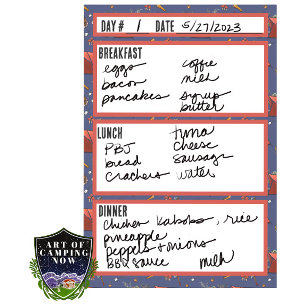 DAY # 1 DATE 5/27/2023
BREAKFAST
eggs coffee
bacon milk
pancakes syrup
butter
LUNCH tuna
PBJ cheese
bread sausage
crackers water
DINNER
chicken kabobs, rice
pineapple
peppers + onions
BBQ sauce milk
ART OF
CAMPING
NOW